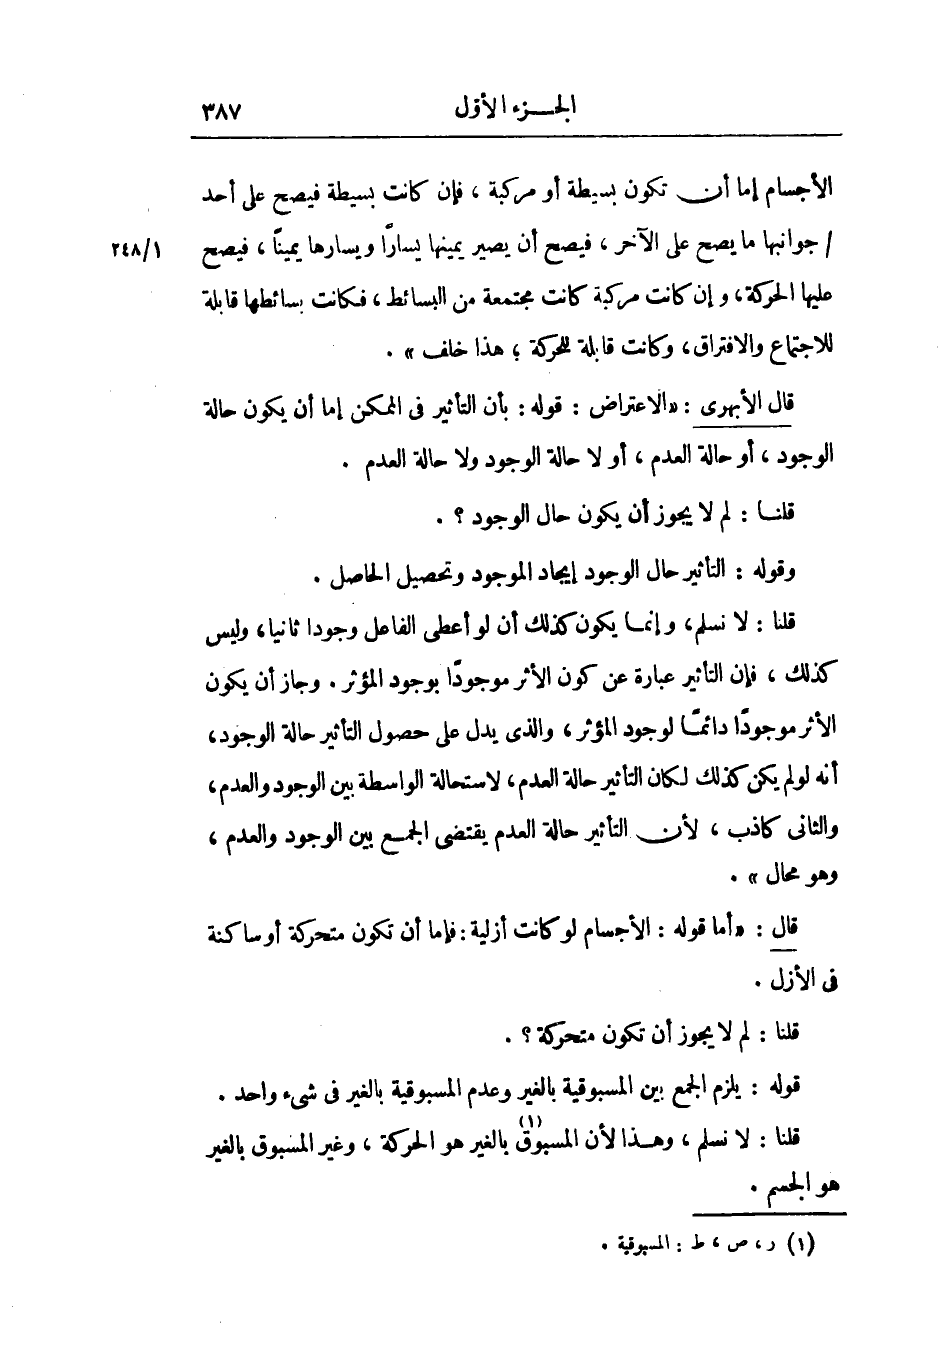 الجزء الأول ٣٨٧
الأجسام إما أن تكون بسيطة أو مركبة ، فإن كانت بسيطة فيصح على أحد
/ جوانبها ما يصح على الآخر ، فيصح أن يصير يمينها يسارًا ويسارها يمينًا ، فيصح ٢٤٨/١
عليها الحركة، وإن كانت مركبة كانت مجتمعة من البسائط ، فكانت بسائطها قابلة
للاجتماع والافتراق، وكانت قابلة للحركة ؛ هذا خلف » .
قال الأبهرى : «الاعتراض : قوله : بأن التأثير فى الممكن إما أن يكون حالة
الوجود ، أو حالة العدم ، أو لا حالة الوجود ولا حالة العدم .
قلنا : لم لا يجوز أن يكون حال الوجود ؟ .
وقوله : التأثير حال الوجود إيجاد الموجود وتحصيل الحاصل .
قلنا : لا نسلم، وإنما يكون كذلك أن لو أعطى الفاعل وجودا ثانيا، وليس
كذلك ، فإن التأثير عبارة عن كون الأثر موجودًا بوجود المؤثر . وجاز أن يكون
الأثر موجودًا دائمًا لوجود المؤثر ، والذى يدل على حصول التأثير حالة الوجود،
أنه لولم يكن كذلك لكان التأثير حالة العدم، لاستحالة الواسطة بين الوجود والعدم،
والثانى كاذب ، لأن التأثير حالة العدم يقتضى الجمع بين الوجود والعدم ،
وهو محال » .
قال : «أما قوله : الأجسام لو كانت أزلية : فإما أن تكون متحركة أو ساكنة
فى الأزل .
قلنا : لم لا يجوز أن تكون متحركة ؟ .
قوله : يلزم الجمع بين المسبوقية بالغير وعدم المسبوقية بالغير فى شىء واحد .
قلنا : لا نسلم ، وهذا لأن المسبوق(١) بالغير هو الحركة ، وغير المسبوق بالغير
هو الجسم .
(١) ر، ص ، ط : المسبوقية .